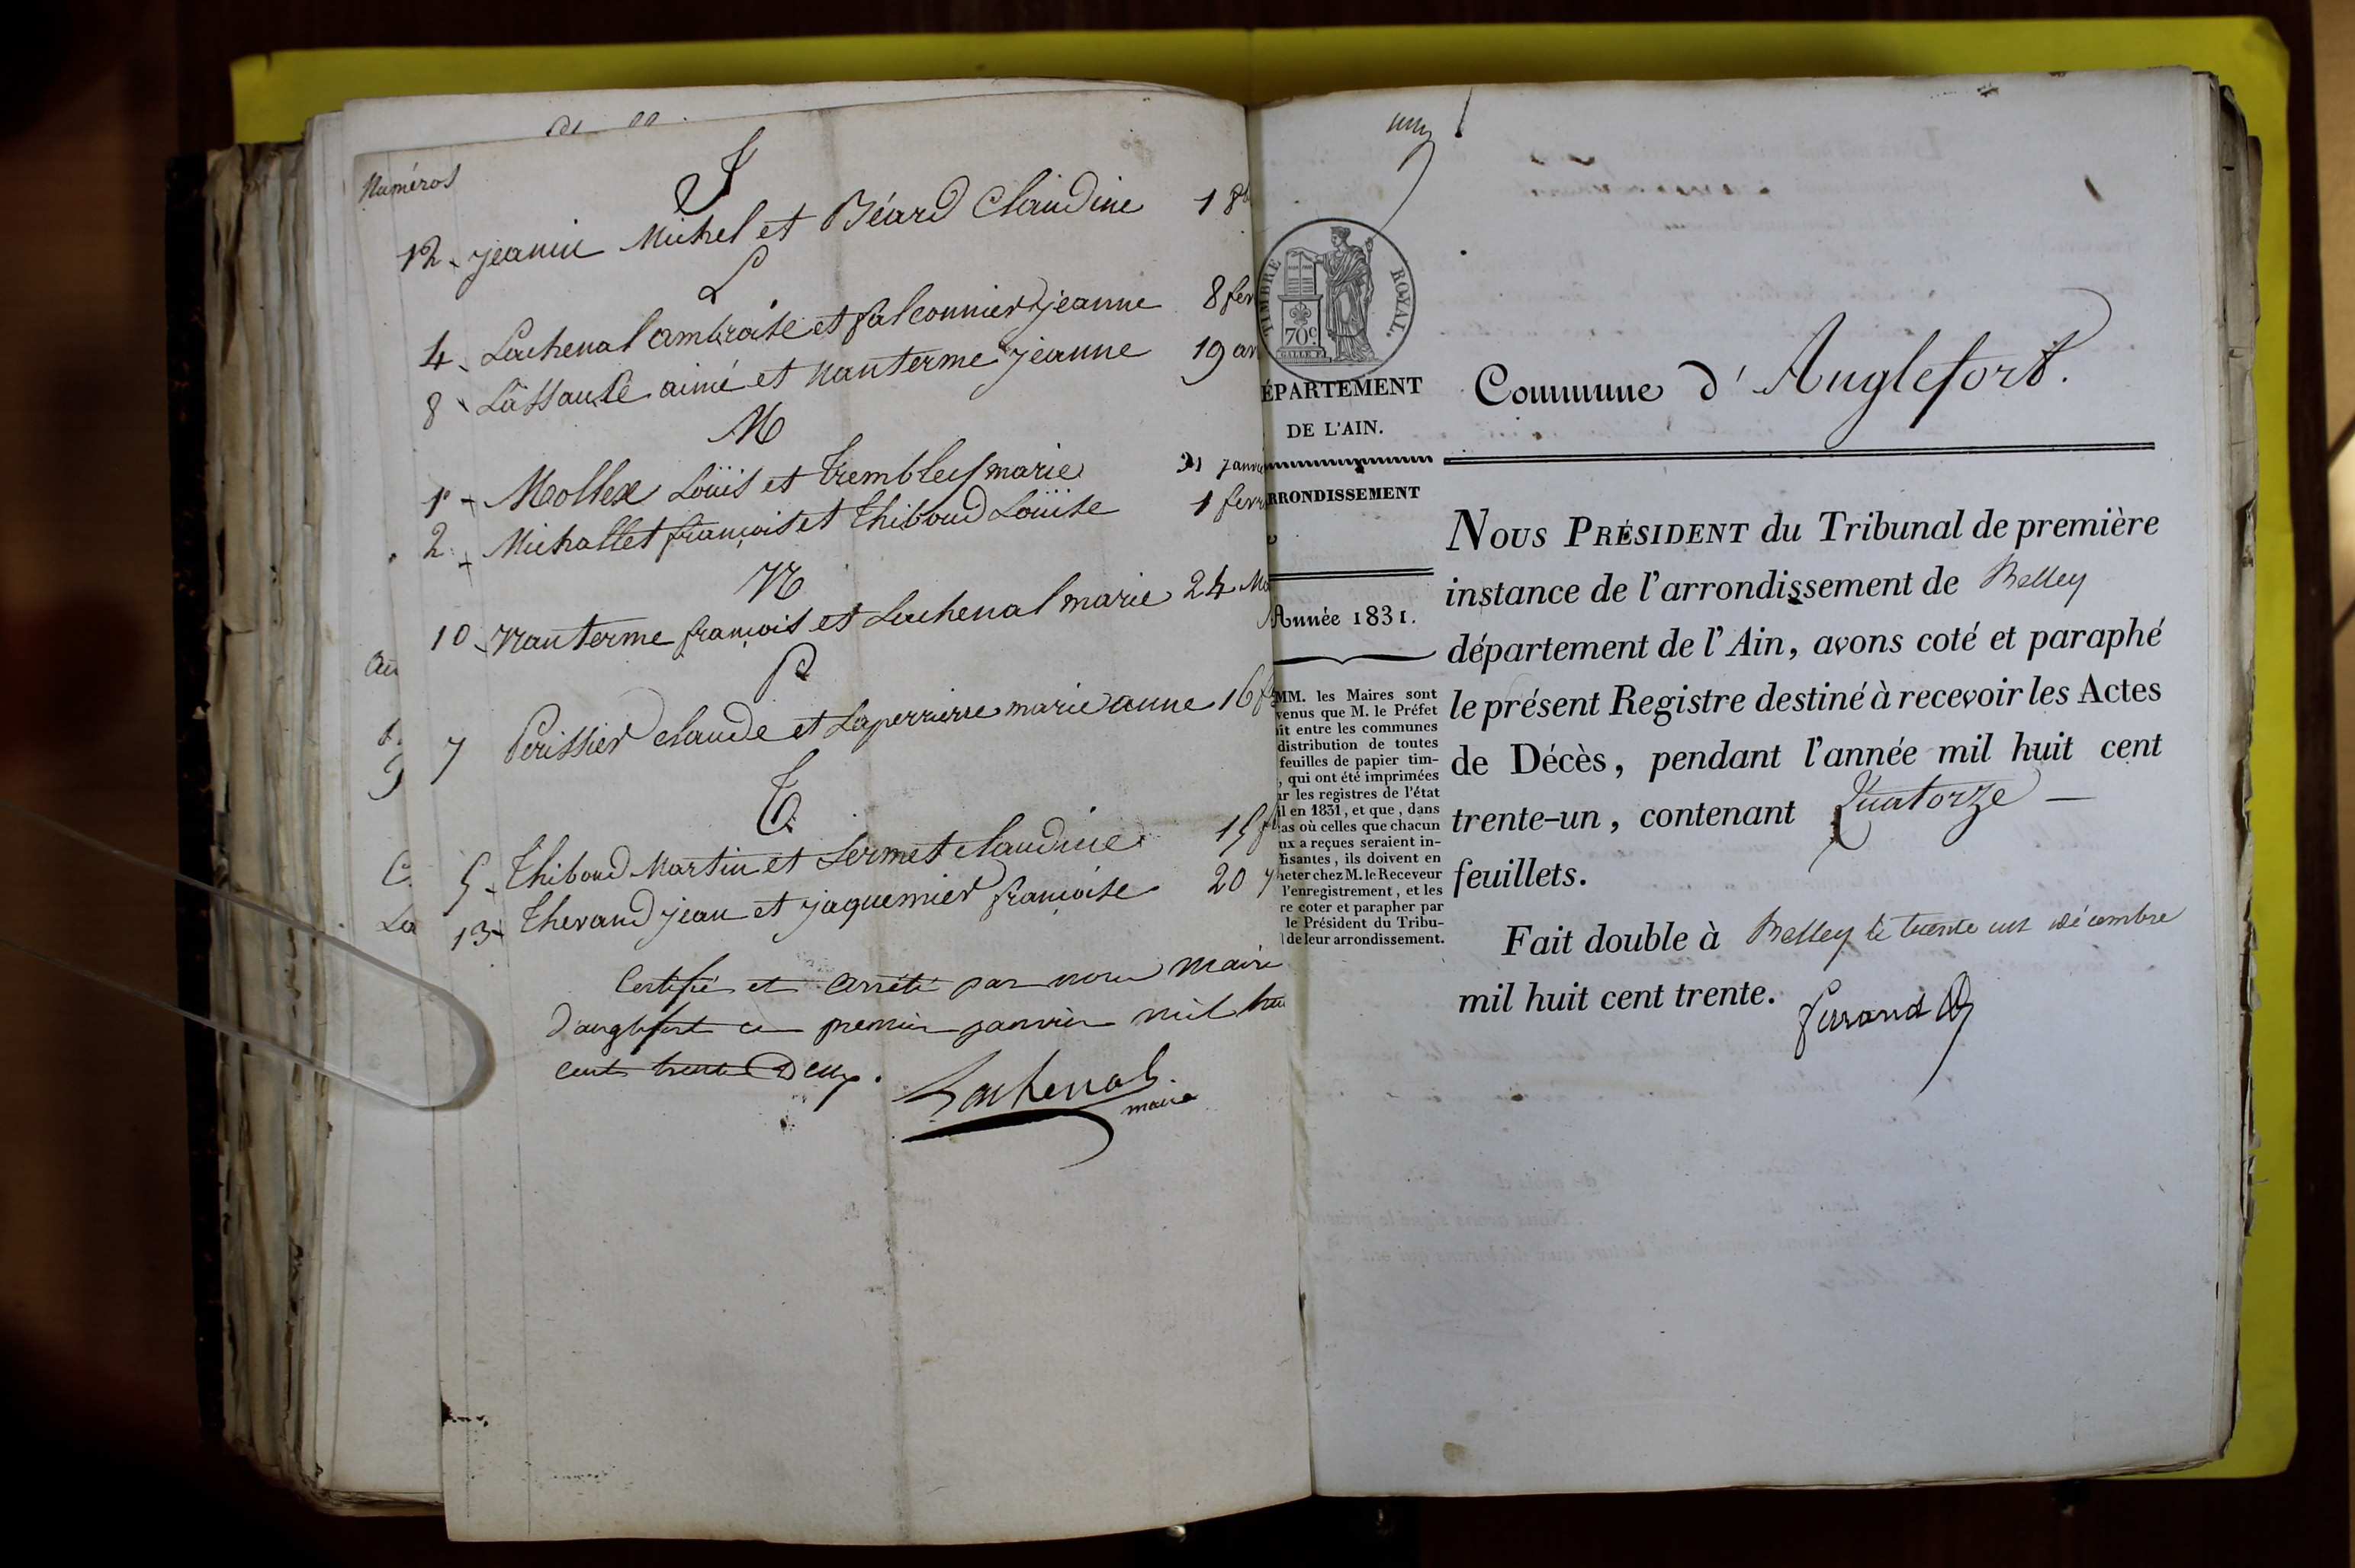 Numéros
J
12 - jeanin Michel et Béard Claudine 1 8b
L
4 - Lachenal ambroise et falconnier jeanne 8 fev
8 - Lassaule aimé et nanterme jeanne 19 av
M
1 - Mollex Loüis et Trembley marie 31 janvie
2 - Michallet françois et Thiboud Loüise 1 fevr
N
10 - Nanterme françois et Lachenal marie 24 Ma
P
7 Perissier claude et Laperriere marie anne 16 f
T
5 - Thiboud Martin et Lermet claudine 15 f
13 - Thevand jean et jaquemier françoise 20 7
Certifié et arrêté par nous maire
d'anglefort ce premier janvier mil hui
cent trente Deux.
Lachenal
maire
un
TIMBRE ROYAL.
70c.
ÉPARTEMENT
DE L'AIN.
RRONDISSEMENT
Année 1831.
MM. les Maires sont
venus que M. le Préfet
it entre les communes
distribution de toutes
feuilles de papier tim-
, qui ont été imprimées
ur les registres de l'état
il en 1831, et que, dans
as où celles que chacun
ux a reçues seraient in-
fisantes, ils doivent en
heter chez M. le Receveur
l'enregistrement, et les
re coter et parapher par
le Président du Tribu-
l de leur arrondissement.
Commune d'Anglefort.
NOUS PRÉSIDENT du Tribunal de première
instance de l'arrondissement de Belley
département de l'Ain, avons coté et paraphé
le présent Registre destiné à recevoir les Actes
de Décès, pendant l'année mil huit cent
trente-un, contenant Quatorze —
feuillets.
Fait double à Belley le trente un décembre
mil huit cent trente.